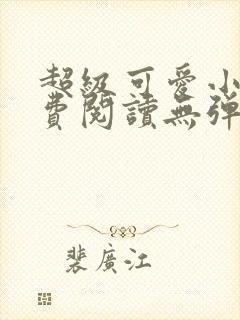 超級可愛小
費閱讀無彈
裴廣江